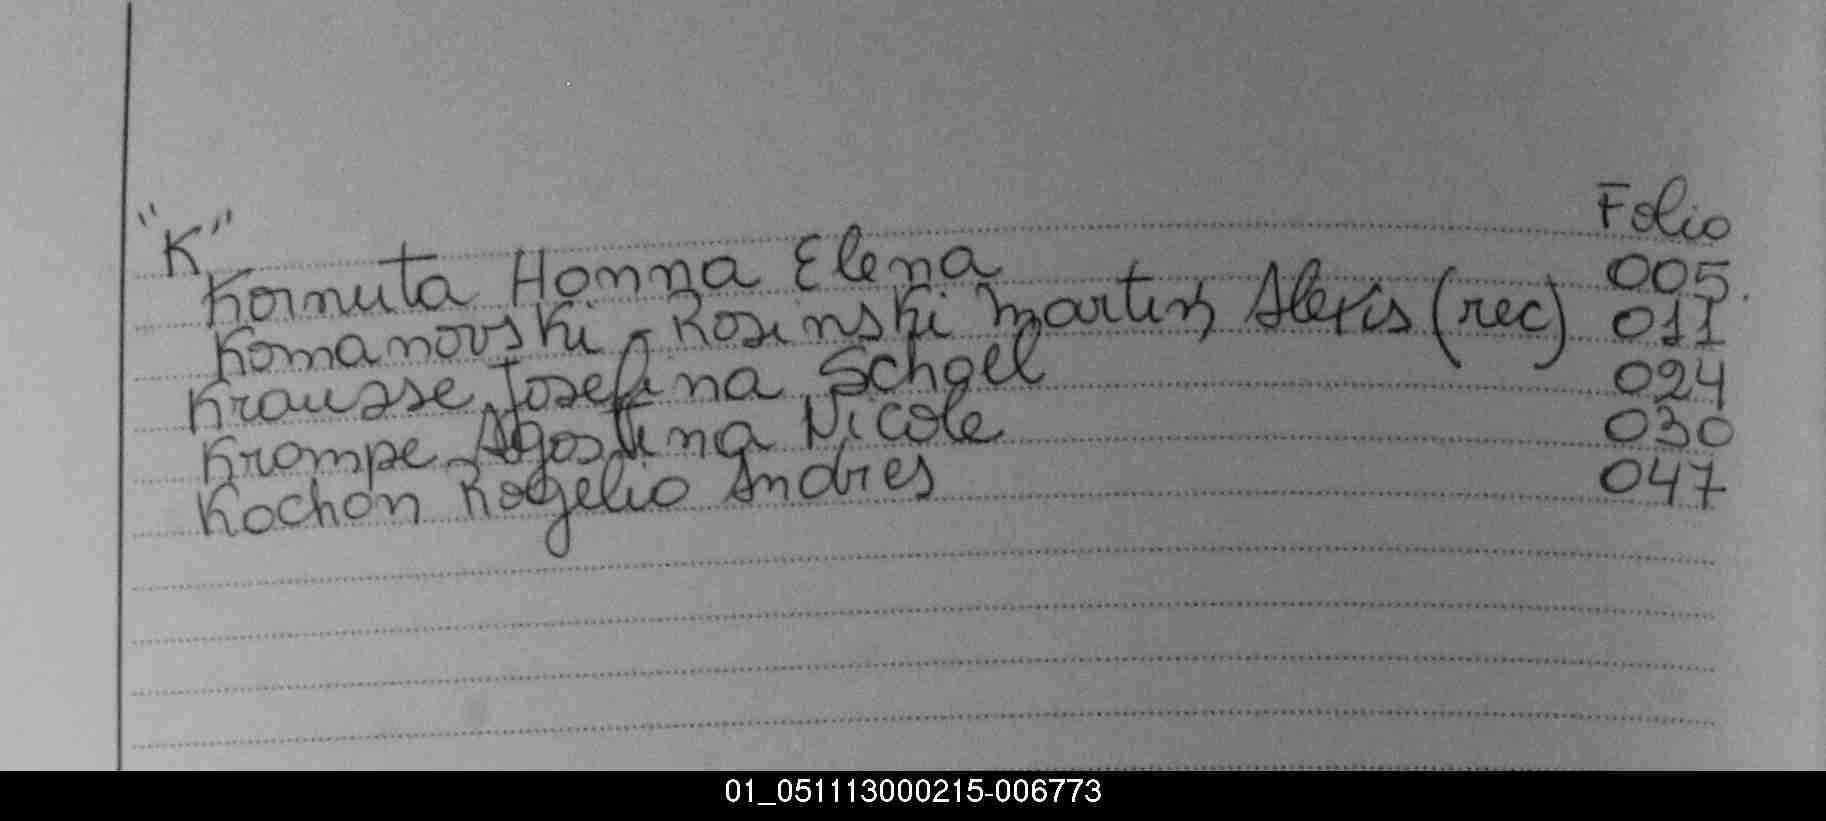 "K" Folio
Kornuta Honna Elena 005.
Komanovski - Rosinski Martin Alexis (rec) 011
Krausse Josefina Schoel 024
Krompe Agostina Nicole 030
Kochon Rogelio Andres 047
01_051113000215-006773